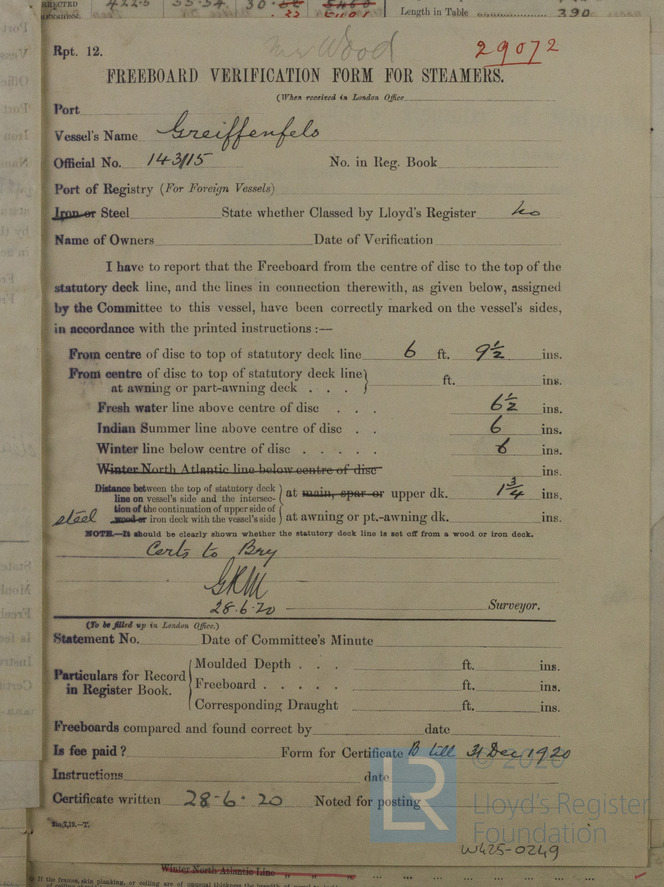 Length in Table 390
Rpt. 12.
Mr Wood
29072
FREEBOARD VERIFICATION FORM FOR STEAMERS.
(When received in London Office
Port
Vessel's Name Greiffenfels
Official No. 143115 No. in Reg. Book
Port of Registry (For Foreign Vessels)
Iron or Steel State whether Classed by Lloyd's Register No
Name of Owners Date of Verification
I have to report that the Freeboard from the centre of disc to the top of the
statutory deck line, and the lines in connection therewith, as given below, assigned
by the Committee to this vessel, have been correctly marked on the vessel's sides,
in accordance with the printed instructions :—
From centre of disc to top of statutory deck line 6 ft. 9½ ins.
From centre of disc to top of statutory deck line
at awning or part-awning deck . . . ft. ins.
Fresh water line above centre of disc . . . 6½ ins.
Indian Summer line above centre of disc . . 6 ins.
Winter line below centre of disc . . . . . 6 ins.
Winter North Atlantic line below centre of disc ins.
Distance between the top of statutory deck
line on vessel's side and the intersec-
tion of the continuation of upper side of
steel wood or iron deck with the vessel's side
at main, spar or upper dk. 1¾ ins.
at awning or pt.-awning dk. ins.
NOTE.—It should be clearly shown whether the statutory deck line is set off from a wood or iron deck.
Certs to Bry
GRM
28-6-20 Surveyor.
(To be filled up in London Office.)
Statement No. Date of Committee's Minute
Particulars for Record
in Register Book.
Moulded Depth . . . ft. ins.
Freeboard . . . . . ft. ins.
Corresponding Draught ft. ins.
Freeboards compared and found correct by date
Is fee paid? Form for Certificate B till 31 Dec 1920
Instructions date
Certificate written 28-6-20 Noted for posting
© 2020
LR
Lloyd's Register
Foundation
W425-0249
Winter North Atlantic Line